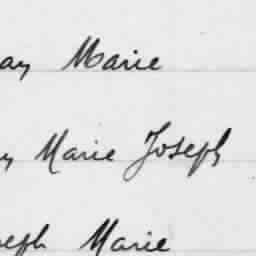 ay Marie
y Marie Joseph
seph Marie